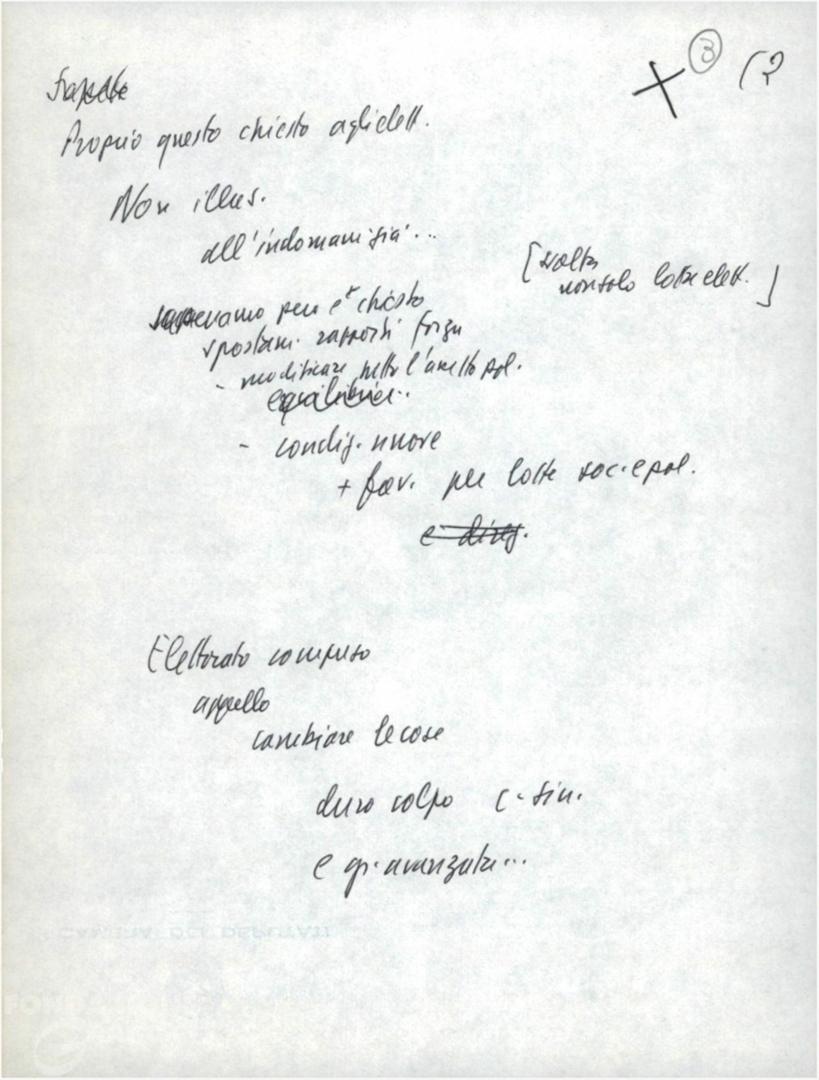 3
(?
Proprio questo chiesto agli elett.
Non illus.
all'indomani già...
[svolta
non solo lotte elett. ]
sapevamo però e chiesto
spostam. rapporti forza
- modificare netto l'assetto pol.
equilibri..
- condiz. nuove
+ fav. per lotte soc. e pol.
Elettorato compreso
appello
cambiare le cose
duro colpo c-sin.
e gr. avanzata...